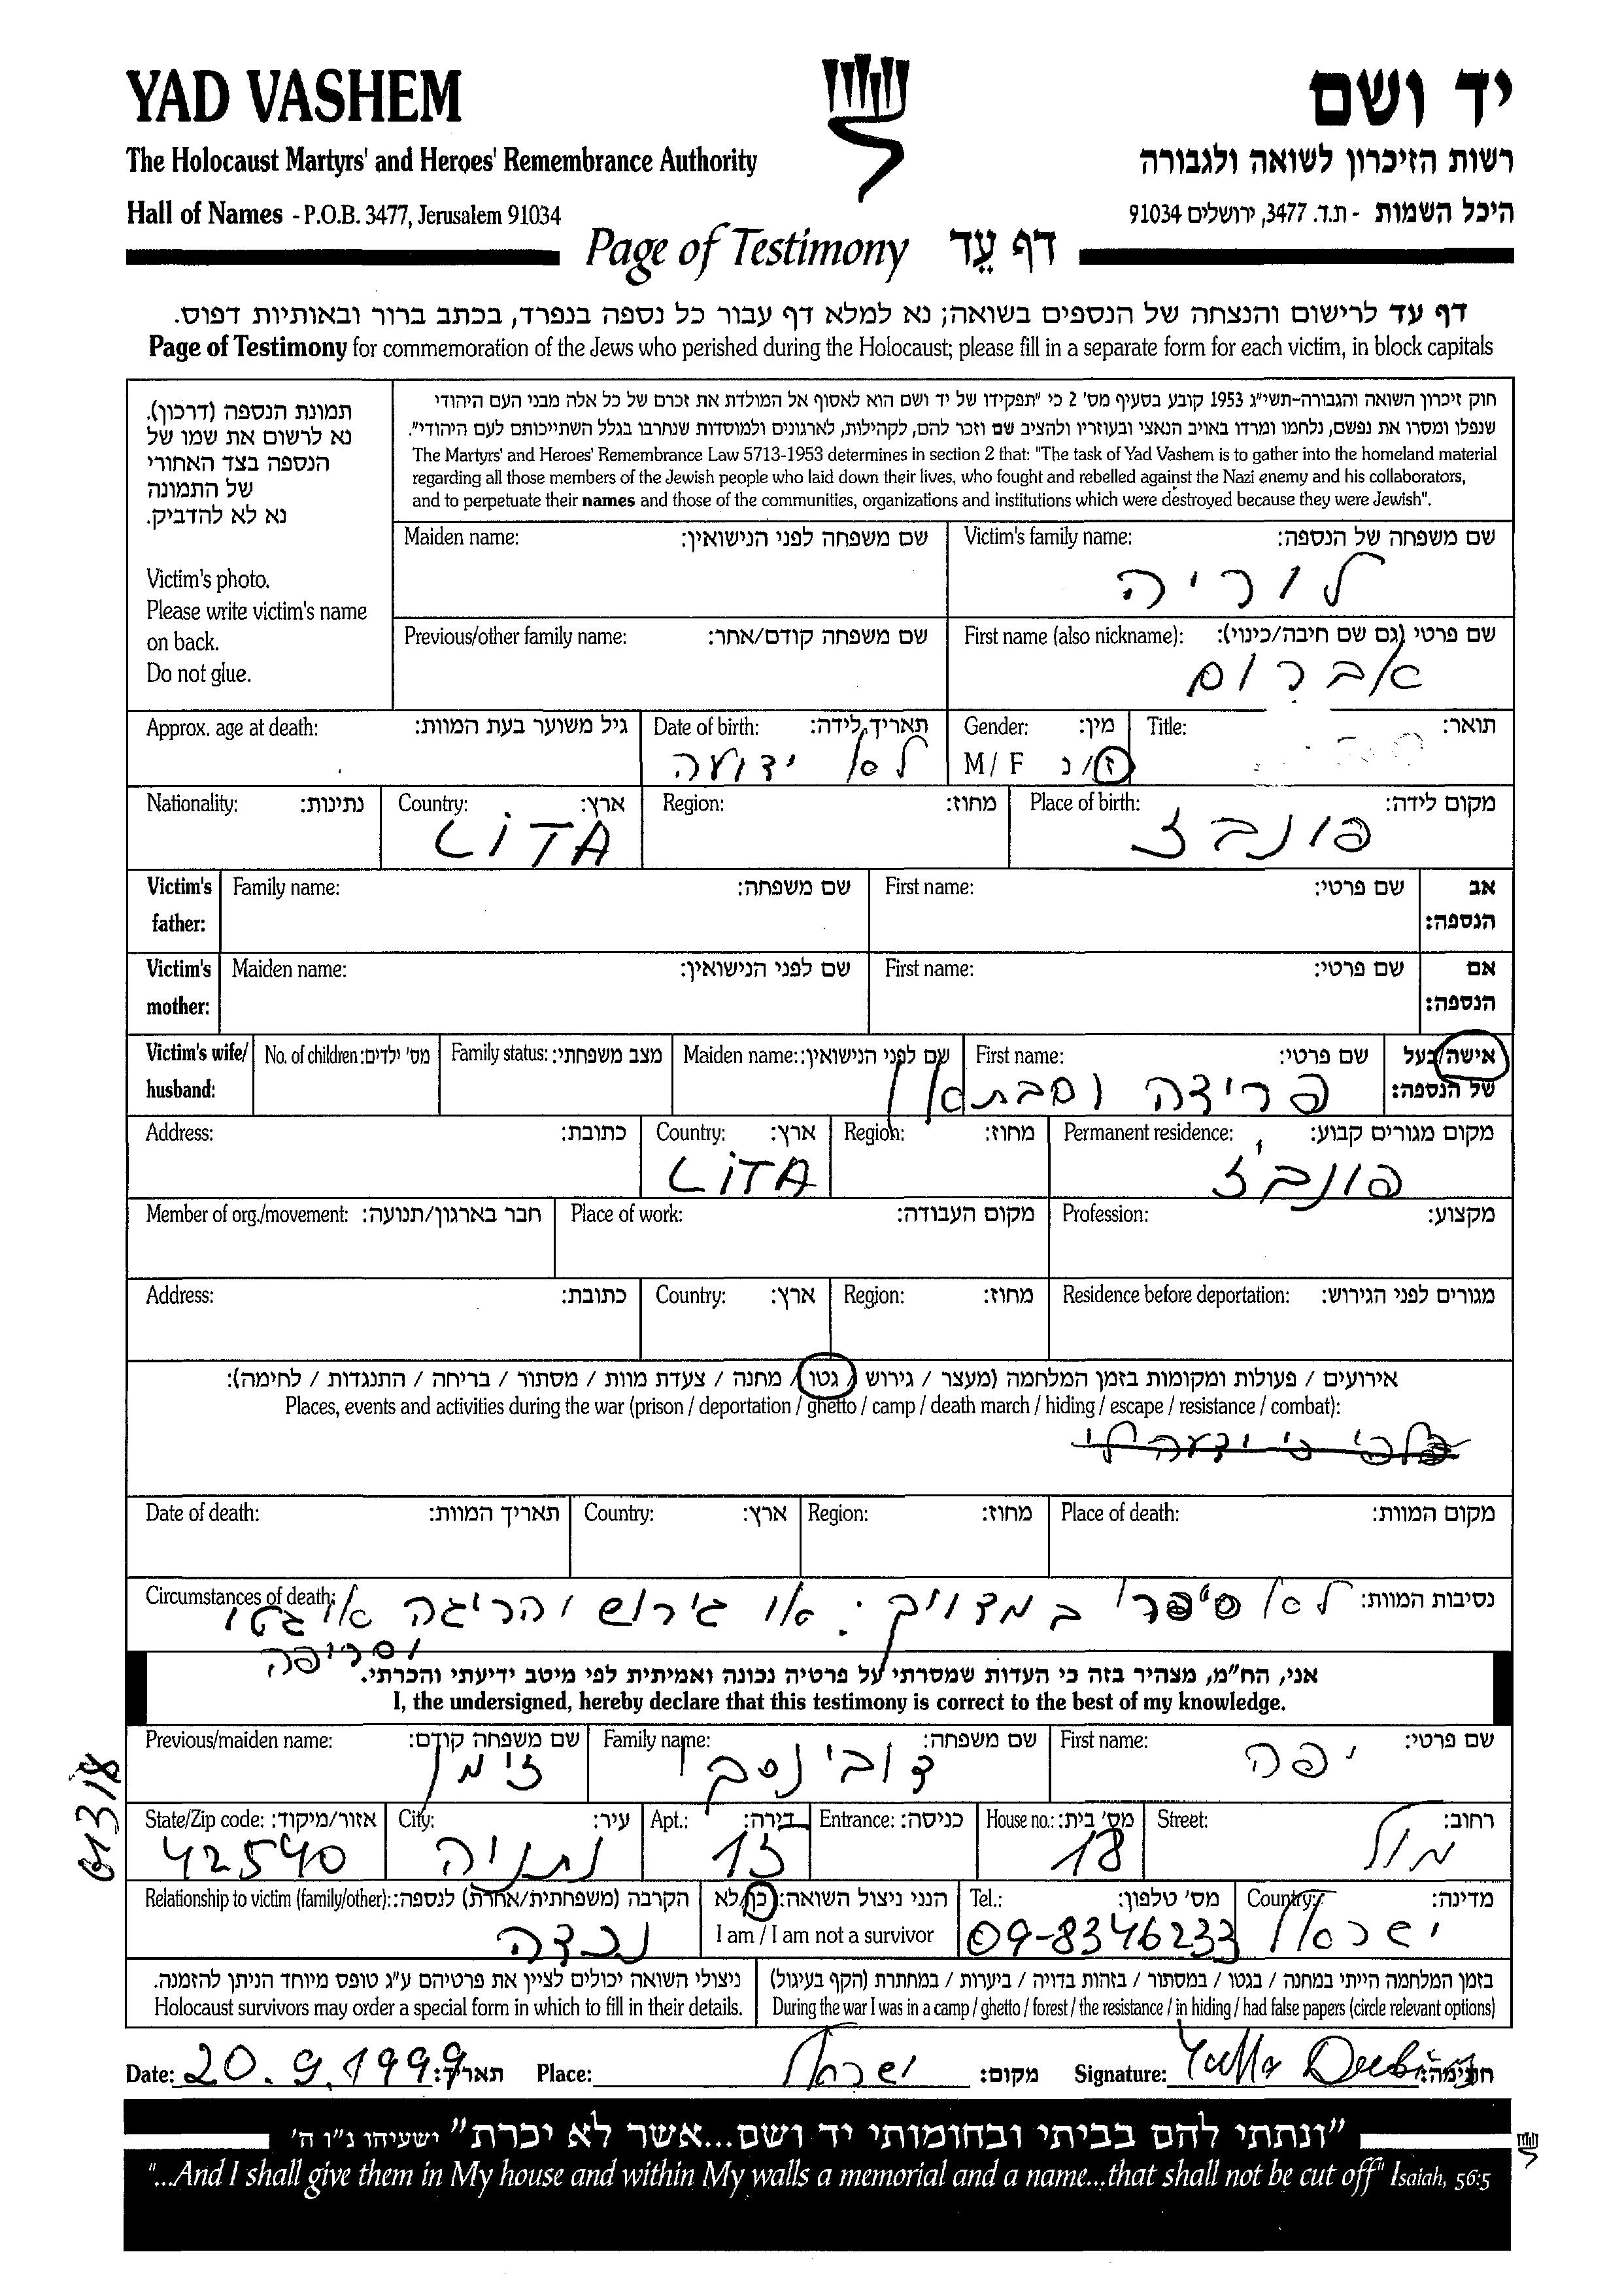 YAD VASHEM
יד ושם
The Holocaust Martyrs' and Heroes' Remembrance Authority
רשות הזיכרון לשואה ולגבורה
Hall of Names - P.O.B. 3477, Jerusalem 91034
היכל השמות - ת.ד. 3477, ירושלים 91034
Page of Testimony דף עֵד
דף עד לרישום והנצחה של הנספים בשואה; נא למלא דף עבור כל נספה בנפרד, בכתב ברור ובאותיות דפוס.
Page of Testimony for commemoration of the Jews who perished during the Holocaust; please fill in a separate form for each victim, in block capitals
תמונת הנספה (דרכון).
נא לרשום את שמו של
הנספה בצד האחורי
של התמונה
נא לא להדביק.
Victim's photo.
Please write victim's name
on back.
Do not glue.
חוק זיכרון השואה והגבורה-תשי"ג 1953 קובע בסעיף מס' 2 כי "תפקידו של יד ושם הוא לאסוף אל המולדת את זכרם של כל אלה מבני העם היהודי
שנפלו ומסרו את נפשם, נלחמו ומרדו באויב הנאצי ובעוזריו ולהציב שם וזכר להם, לקהילות, לארגונים ולמוסדות שנחרבו בגלל השתייכותם לעם היהודי".
The Martyrs' and Heroes' Remembrance Law 5713-1953 determines in section 2 that: "The task of Yad Vashem is to gather into the homeland material
regarding all those members of the Jewish people who laid down their lives, who fought and rebelled against the Nazi enemy and his collaborators,
and to perpetuate their names and those of the communities, organizations and institutions which were destroyed because they were Jewish".
Victim's family name: שם משפחה של הנספה:
לוריה
Maiden name: שם משפחה לפני הנישואין:
First name (also nickname): שם פרטי (גם שם חיבה/כינוי):
אברום
Previous/other family name: שם משפחה קודם/אחר:
Title: תואר:
Gender: מין:
M / F ז/נ
Date of birth: תאריך לידה:
לא ידועה
Approx. age at death: גיל משוער בעת המוות:
Place of birth: מקום לידה:
פונבז
Region: מחוז:
Country: ארץ:
LITA
Nationality: נתינות:
אב
הנספה:
First name: שם פרטי:
Family name: שם משפחה:
Victim's
father:
אם
הנספה:
First name: שם פרטי:
Maiden name: שם לפני הנישואין:
Victim's
mother:
אישה/בעל
של הנספה:
First name: שם פרטי:
Maiden name: שם לפני הנישואין:
פרידה וסבתא
Family status: מצב משפחתי:
No. of children: מס' ילדים:
Victim's wife/
husband:
Permanent residence: מקום מגורים קבוע:
פונבז'
Region: מחוז:
Country: ארץ:
LITA
Address: כתובת:
Profession: מקצוע:
Place of work: מקום העבודה:
Member of org./movement: חבר בארגון/תנועה:
Residence before deportation: מגורים לפני הגירוש:
Region: מחוז:
Country: ארץ:
Address: כתובת:
אירועים / פעולות ומקומות בזמן המלחמה (מעצר / גירוש / גטו / מחנה / צעדת מוות / מסתור / בריחה / התנגדות / לחימה):
Places, events and activities during the war (prison / deportation / ghetto / camp / death march / hiding / escape / resistance / combat):
Place of death: מקום המוות:
Region: מחוז:
Country: ארץ:
Date of death: תאריך המוות:
Circumstances of death: נסיבות המוות:
לא סיפרו במדויק: או גירוש והריגה או גטו
ושריפה
אני, הח"מ, מצהיר בזה כי העדות שמסרתי על פרטיה נכונה ואמיתית לפי מיטב ידיעתי והכרתי.
I, the undersigned, hereby declare that this testimony is correct to the best of my knowledge.
First name: שם פרטי:
יפה
Family name: שם משפחה:
דובינסקי
Previous/maiden name: שם משפחה קודם:
זימן
Street: רחוב:
House no.: מס' בית:
18
Entrance: כניסה:
Apt.: דירה:
13
City: עיר:
נתניה
State/Zip code: אזור/מיקוד:
42540
Country: מדינה:
ישראל
Tel.: מס' טלפון:
09-8346233
הנני ניצול השואה: כן/לא
I am / I am not a survivor
Relationship to victim (family/other): הקרבה (משפחתית/אחרת) לנספה:
נכדה
בזמן המלחמה הייתי במחנה / בגטו / במסתור / בזהות בדויה / ביערות / במחתרת (הקף בעיגול)
During the war I was in a camp / ghetto / forest / the resistance / in hiding / had false papers (circle relevant options)
ניצולי השואה יכולים לציין את פרטיהם ע"ג טופס מיוחד הניתן להזמנה.
Holocaust survivors may order a special form in which to fill in their details.
Date: 20.9.1999 תאריך: Place: ישראל מקום: Signature: Yaffa חתימה:
"ונתתי להם בביתי ובחומותי יד ושם...אשר לא יכרת" ישעיהו נ"ו ה'
"...And I shall give them in My house and within My walls a memorial and a name...that shall not be cut off" Isaiah, 56:5